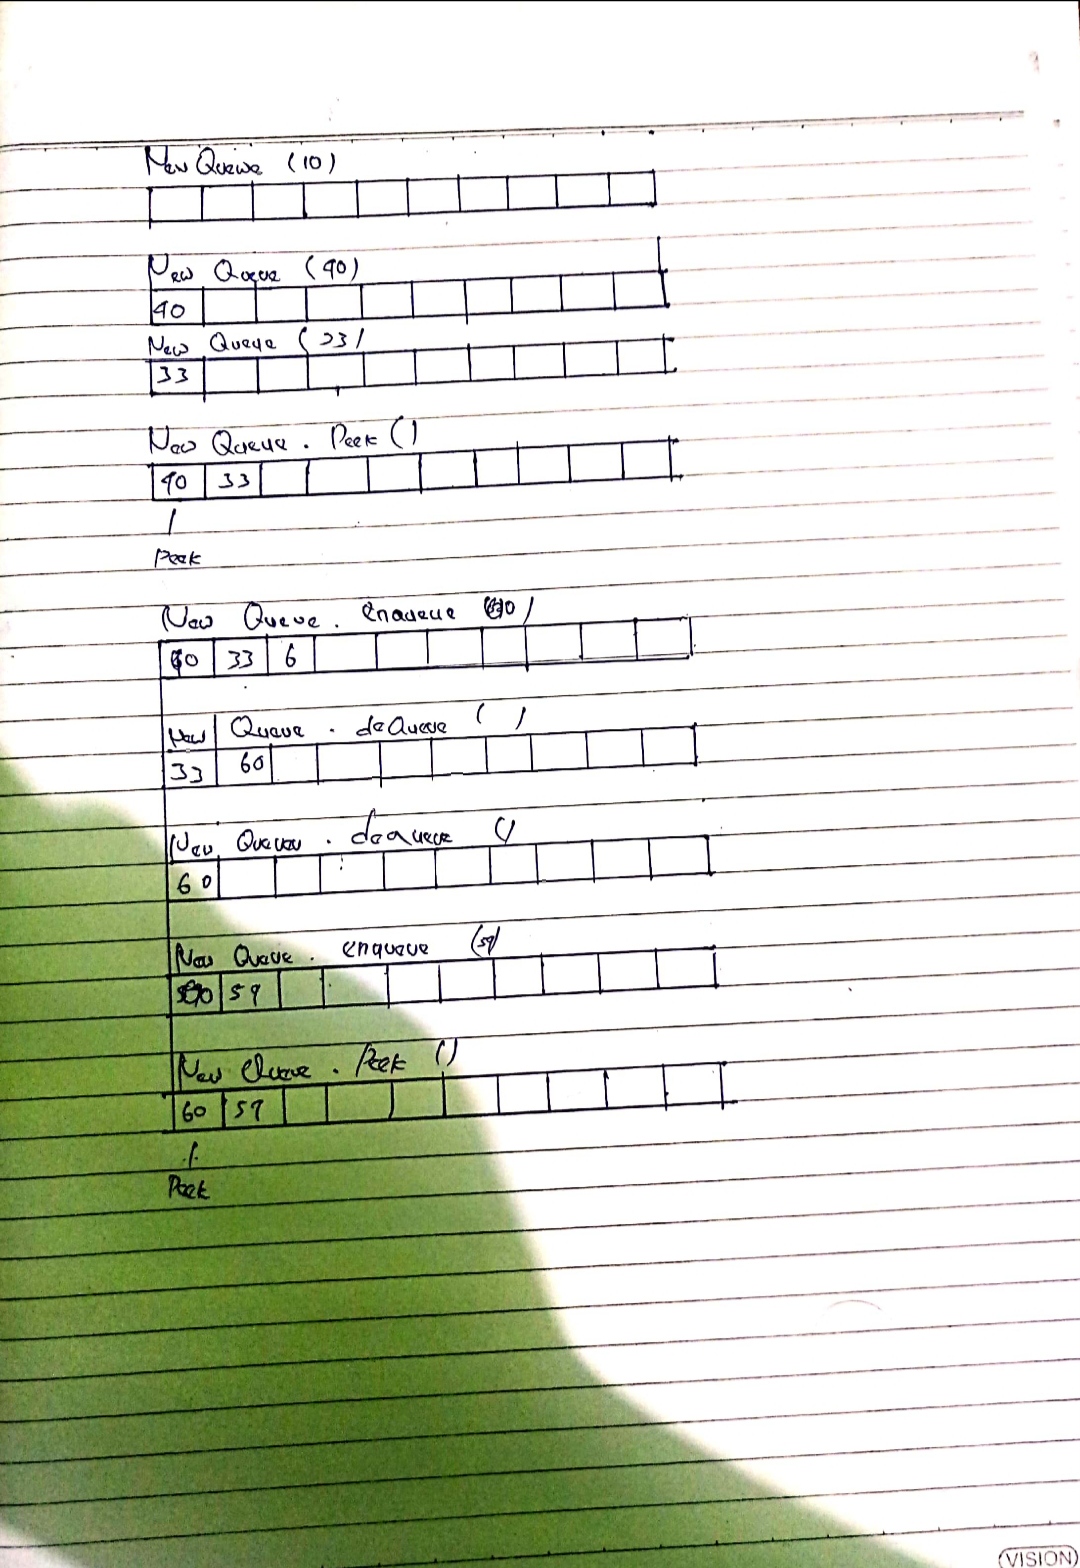 New Queue (10)
New Queue (40)
40
New Queue (33)
33
New Queue . Peek ()
40 33
Peek
New Queue . enqueue
40 33 6
New Queue . deQueue ( )
33 60
New Queue . dequeue ()
60
New Queue . enqueue (59)
59
New Queue . Peek ()
60 59
Peek
VISION